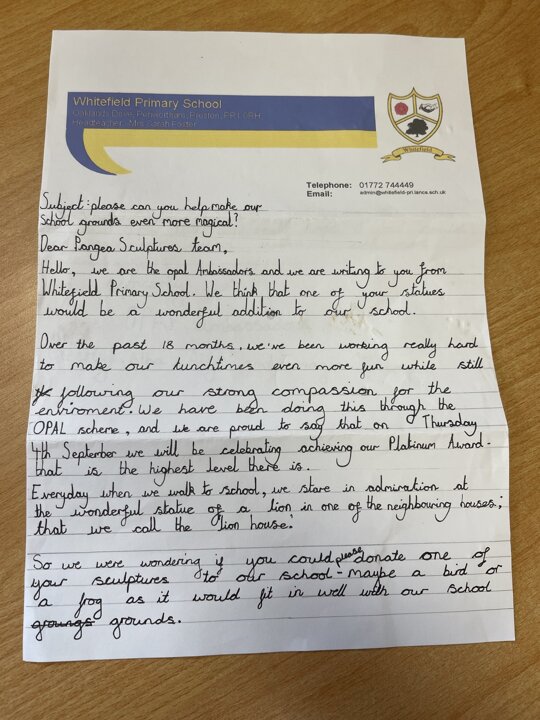 Whitefield Primary School
Oaklands Drive, Penwortham, Preston, PR1 0RH
Headteacher: Mrs Sarah Foster
Whitefield
Telephone: 01772 744449
Email: admin@whitefield-pri.lancs.sch.uk
Subject: please can you help make our
school grounds even more magical?
Dear Pangea Sculptures team,
Hello, we are the opal Ambassadors and we are writing to you from
Whitefield Primary School. We think that one of your statues
would be a wonderful addition to our school.
Over the past 18 months, we've been working really hard
to make our lunchtimes even more fun while still
following our strong compassion for the
enviroment. We have been doing this through the
OPAL scheme, and we are proud to say that on Thursday
4th September we will be celebrating achieving our Platinum Award -
that is the highest level there is.
Everyday when we walk to school, we stare in admiration at
the wonderful statue of a lion in one of the neighbouring houses;
that we call the 'lion house.'
So we were wondering if you could please donate one of
your sculptures to our school - maybe a bird or
a frog as it would fit in well with our school
groungs grounds.